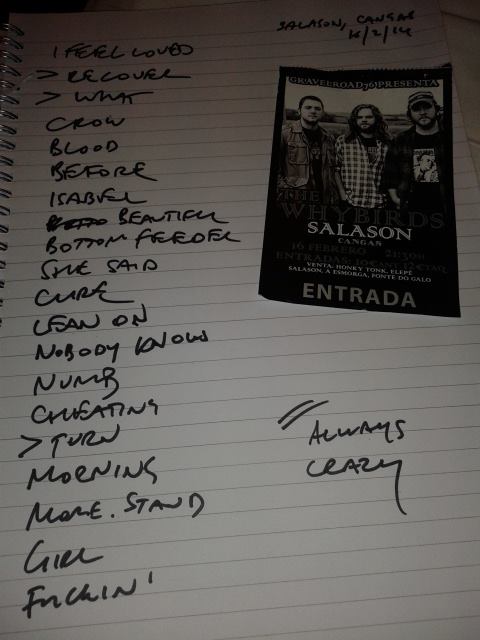 SALASON, CANGAS
16/2/14
I FEEL LOVED
> RECOVER
> WHAT
CROW
BLOOD
BEFORE
ISABEL
BEAUTIFUL
BOTTOM FEEDER
SHE SAID
CURE
LEAN ON
NOBODY KNOWS
NUMB
CHEATING
> TURN
MORNING
MORE. STAND
GIRL
FUCKIN'
GRAVELROAD761PRESENTA
THE
WHYBIRDS
SALASON
CANGAS
16 FEBRERO 21:30H
ENTRADAS:
VENTA: HONKY TONK, ELEPÉ
SALASON, A ESMORGA, PONTE DO GALO
ENTRADA
ALWAYS
CRAZY